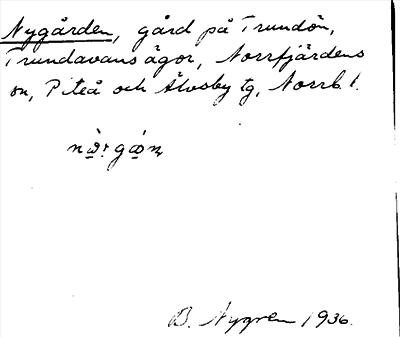 Nygården, gård på Trundön,
Trundavans ägor, Norrfjärdens
sn, Piteå och Älvsby tg, Norrb. l.
B. Nygren 1936.